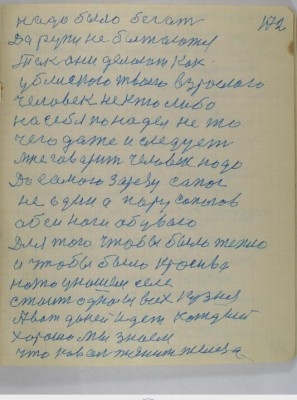 172
надо было бегат
Да руги не болтоложи
Так они делают как
у близкого твоего взрослого
человек некто либо
на себя понадея не то
чего даже и следует
мне говорит человек надо
До самого Зарезу сапог
не один а пару сапогов
обе и ноги обуваю
Для того чтобы было тепло
и чтобы было красива
на то у нашем селе
стоит одна и вых кузня
А вот дней идет каждый
хорошо мы знаем
что ковал железа